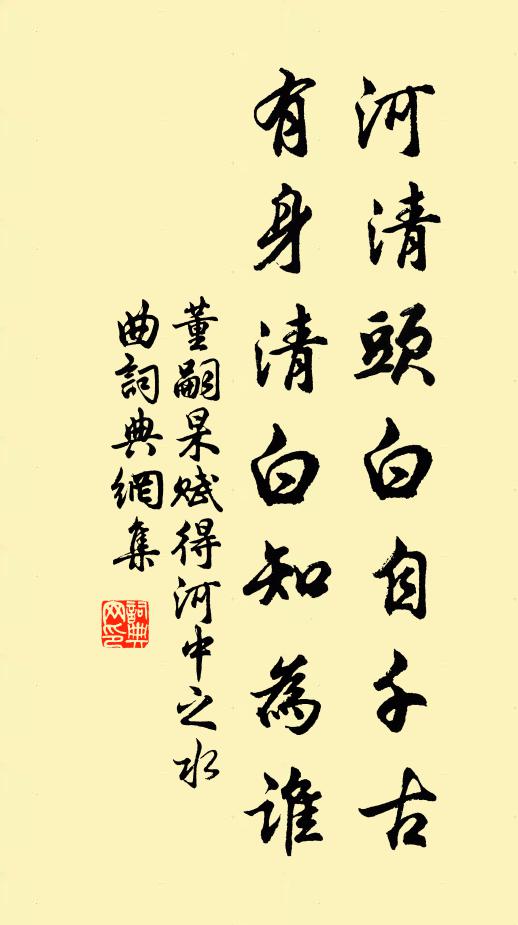 河清頭白自千古
有身清白知為誰
董嗣杲賦得河中之水
曲詞典網集
詞典
网印